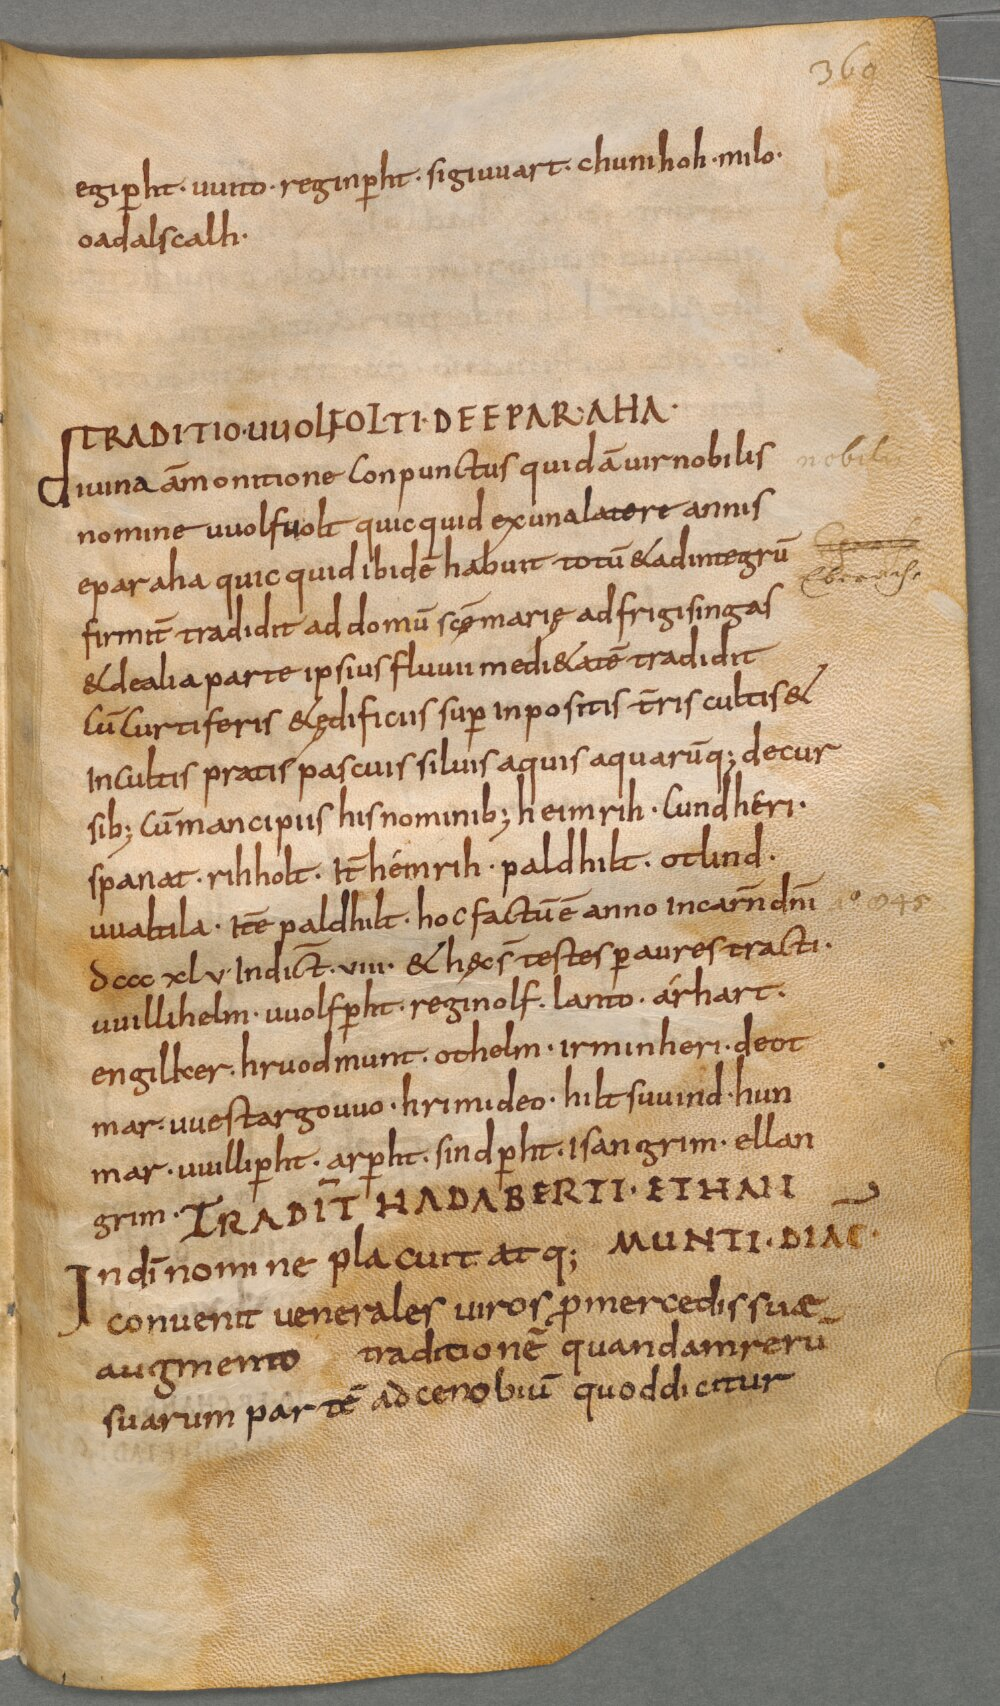 360
egip̄ht · uuito · reginp̄ht · sigiuuart · chunihoh · milo ·
oadalscalh ·
TRADITIO · UUOLFOLTI · DE EPAR · AHA ·
diuina āmonitione conpunctus quidā uir nobilis
nobili
nomine uuolfuolt quicquid ex una latere annis
eparaha quicquid ibidē habuit totū & ad integrū
firmit̄ tradidit ad domū scę̄ marię ad frigisingas
& de alia parte ipsius fluuii medi&atē tradidit
cū curtiferis & ędificiis sup̄ inpositis t̄ris cultis &
incultis pratis pascuis siluis aquis aquarūq; decur
sib; cū mancipiis his nominib; heimrih · cundheri ·
spanat · rihholt · It̄ heimrih · paldhilt · otlind ·
uualtila · Itē paldhilt · hoc factū ē anno incarn̄ dn̄i
aº 845
dccc xlv · Indict̄ · viii · & hęc s̄ testes p̄ aures tracti ·
uuillihelm · uuolfp̄ht · reginolf · lanto · árhart ·
engilker · hruodmunt · othelm · irminheri · deot
mar · uuestargouuo · hrimideo · hiltsuuind · hun
mar · uuillip̄ht · arp̄ht · sindp̄ht · isangrim · ellan
grim · TRADIT̄ HADABERTI · ET HAH
MUNTI · DIAC̄ ·
In dī nomine placuit atq;
conuenit uenerales uiros p̄ mercedis suæ
augmento traditionē quandam rerū
suarum partē ad cenobiū quod dicitur